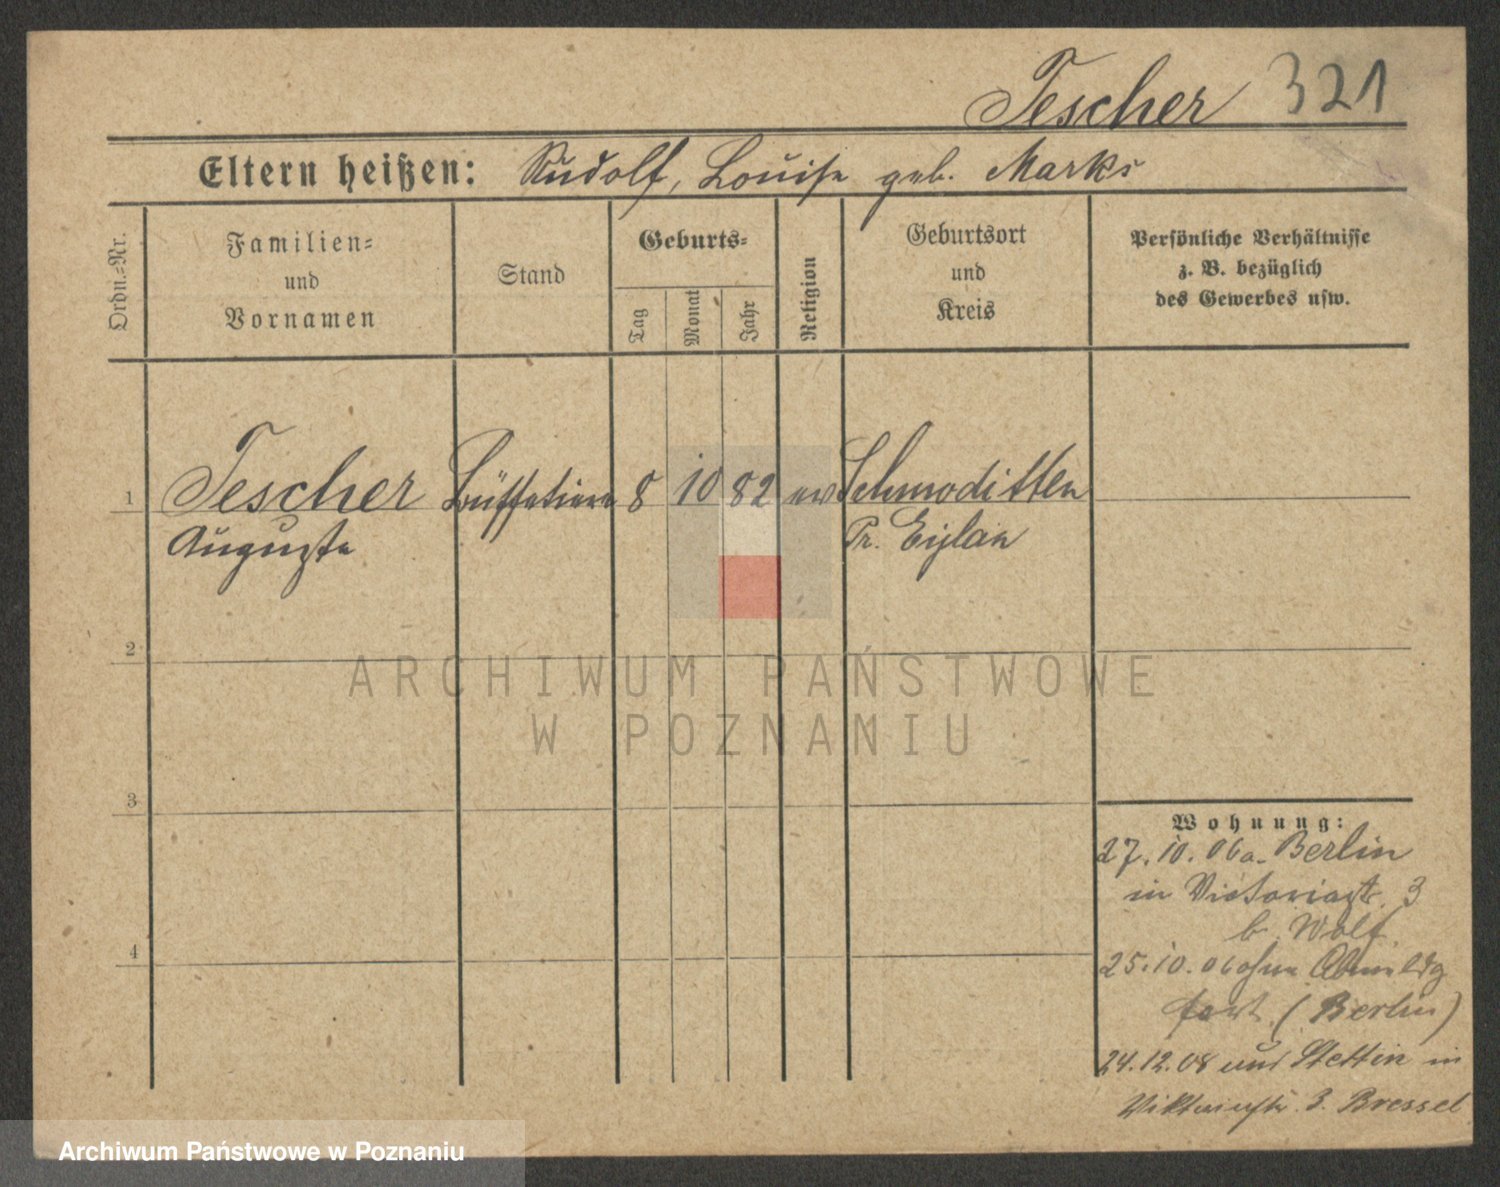 Tescher 321
Eltern heißen: Rudolf, Louise geb. Marks
Ordn.-Nr.
Familien-
und
Vornamen
Stand
Geburts-
Tag
Monat
Jahr
Religion
Geburtsort
und
Kreis
Persönliche Verhältnisse
z. B. bezüglich
des Gewerbes usw.
1 Tescher Büffetiere 8 10 82 ev Schmoditten
Auguste Pr. Eylau
2
3
4
Wohnung:
27.10.06 a. Berlin
in Victoriastr. 3
b. Wolf
25.10.06 ohne Abmeldg
fort (Berlin)
24.12.08 aus Stettin in
Viktoriastr. 3. Bressel
ARCHIWUM PAŃSTWOWE
W POZNANIU
Archiwum Państwowe w Poznaniu